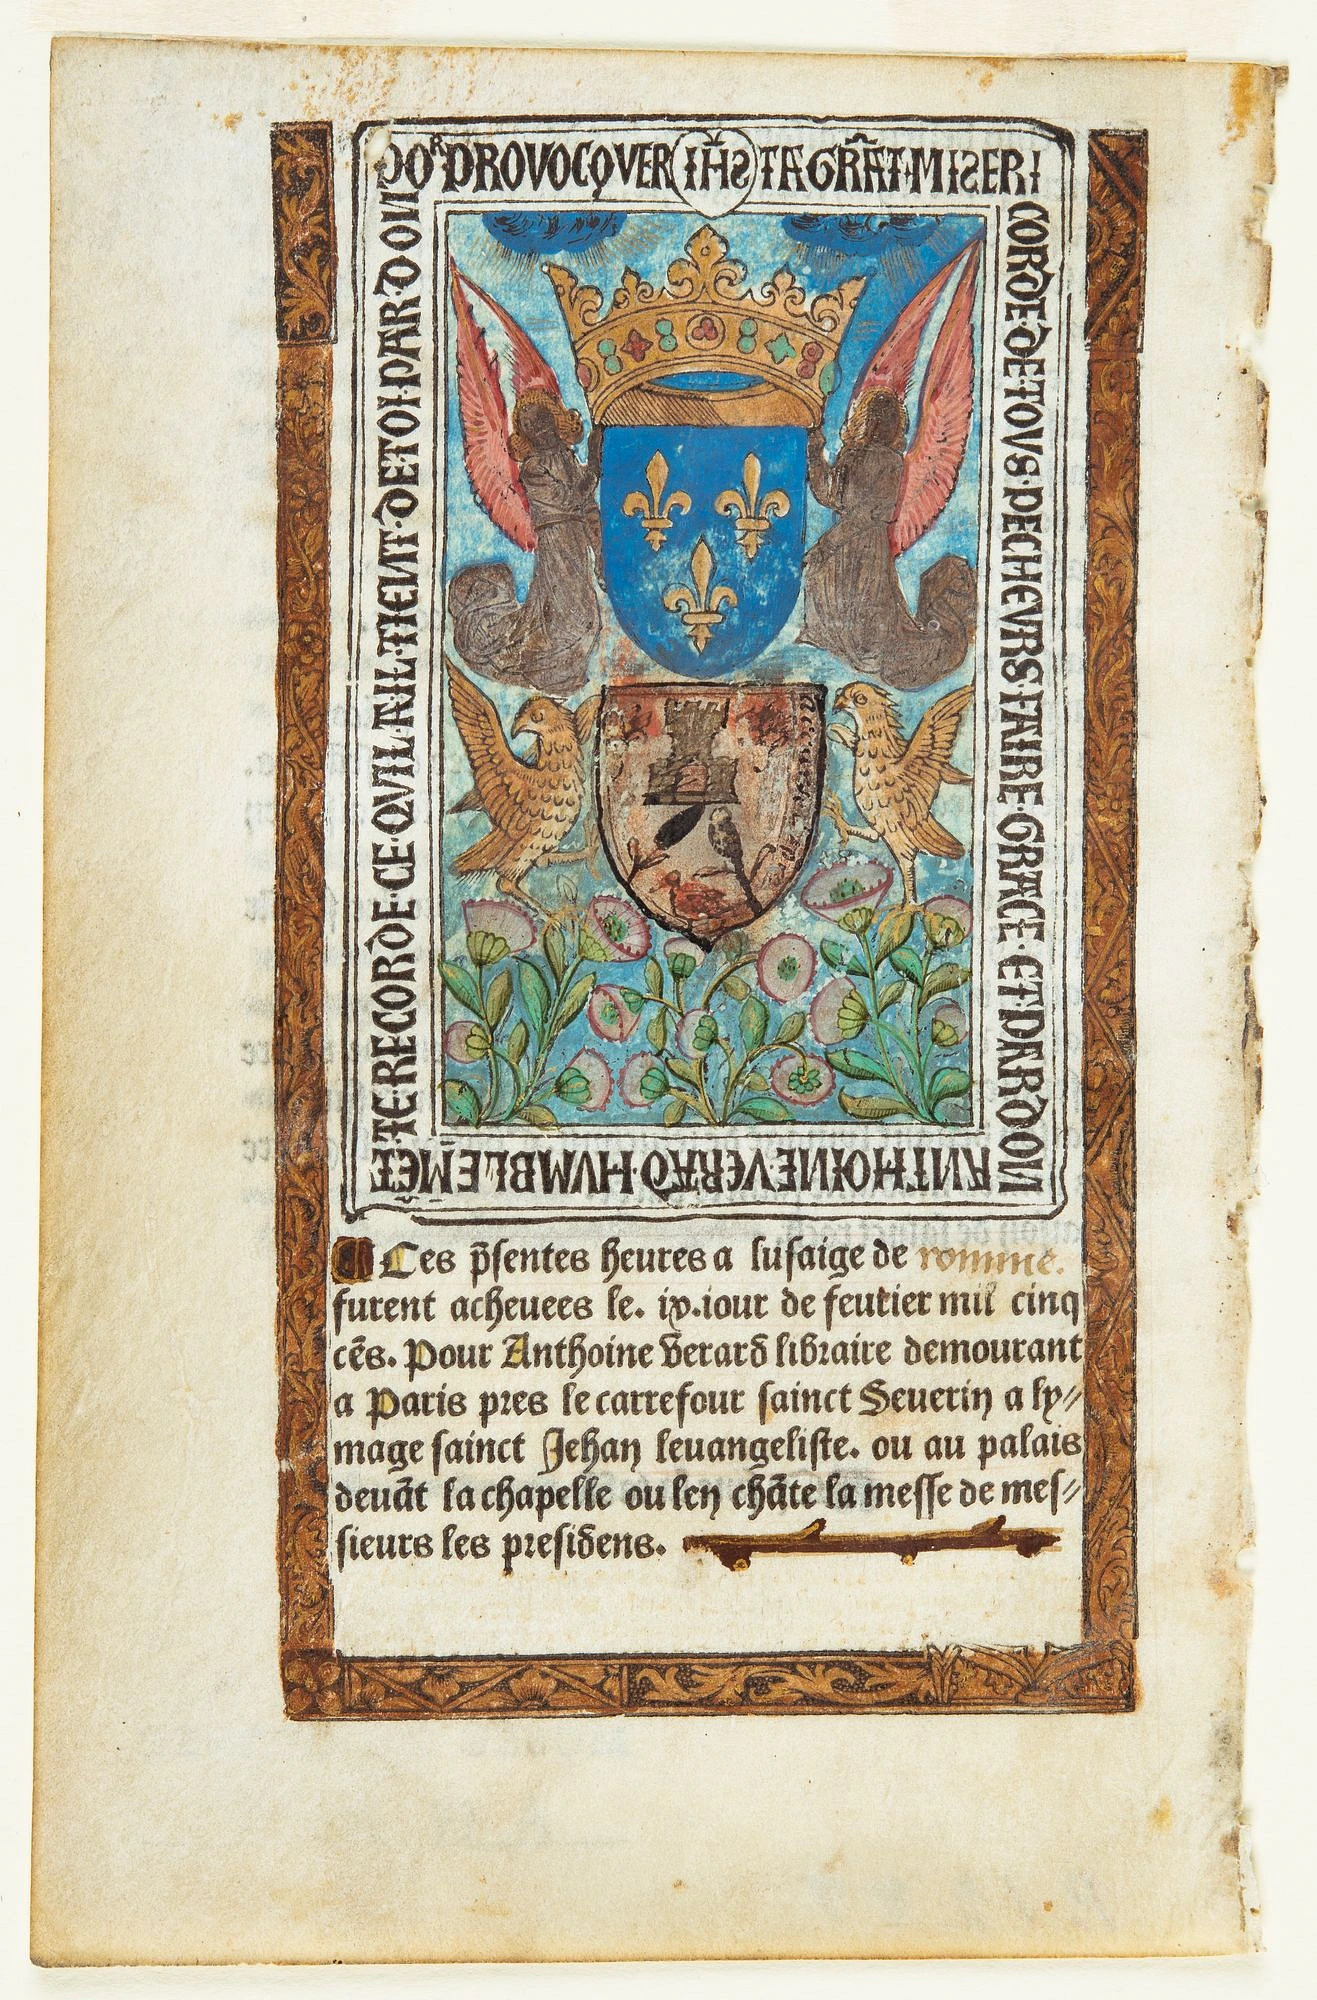 POᴿ PROVOCQVER IH̄S TA GRÃT MISERI
CORDE·DE·TOVS·PECHEVRS·FAIRE·GRACE·ET PARDON
ANTHOINE·VERAD̄·HVMBLEMẼT
TE·RECORDE·CE·QVIL·A·IL·TIENT·DE TOI·PAR·DON
Ces p̃sentes heures a lusaige de romme.
furent acheuees le. ix.iour de feurier mil cinq
cẽs. Pour Anthoine Verard libraire demourant
a Paris pres le carrefour sainct Seuerin a ly⸗
mage sainct Jehan leuangeliste. ou au palais
deuãt la chapelle ou len chãte la messe de mes⸗
sieurs les presidens.